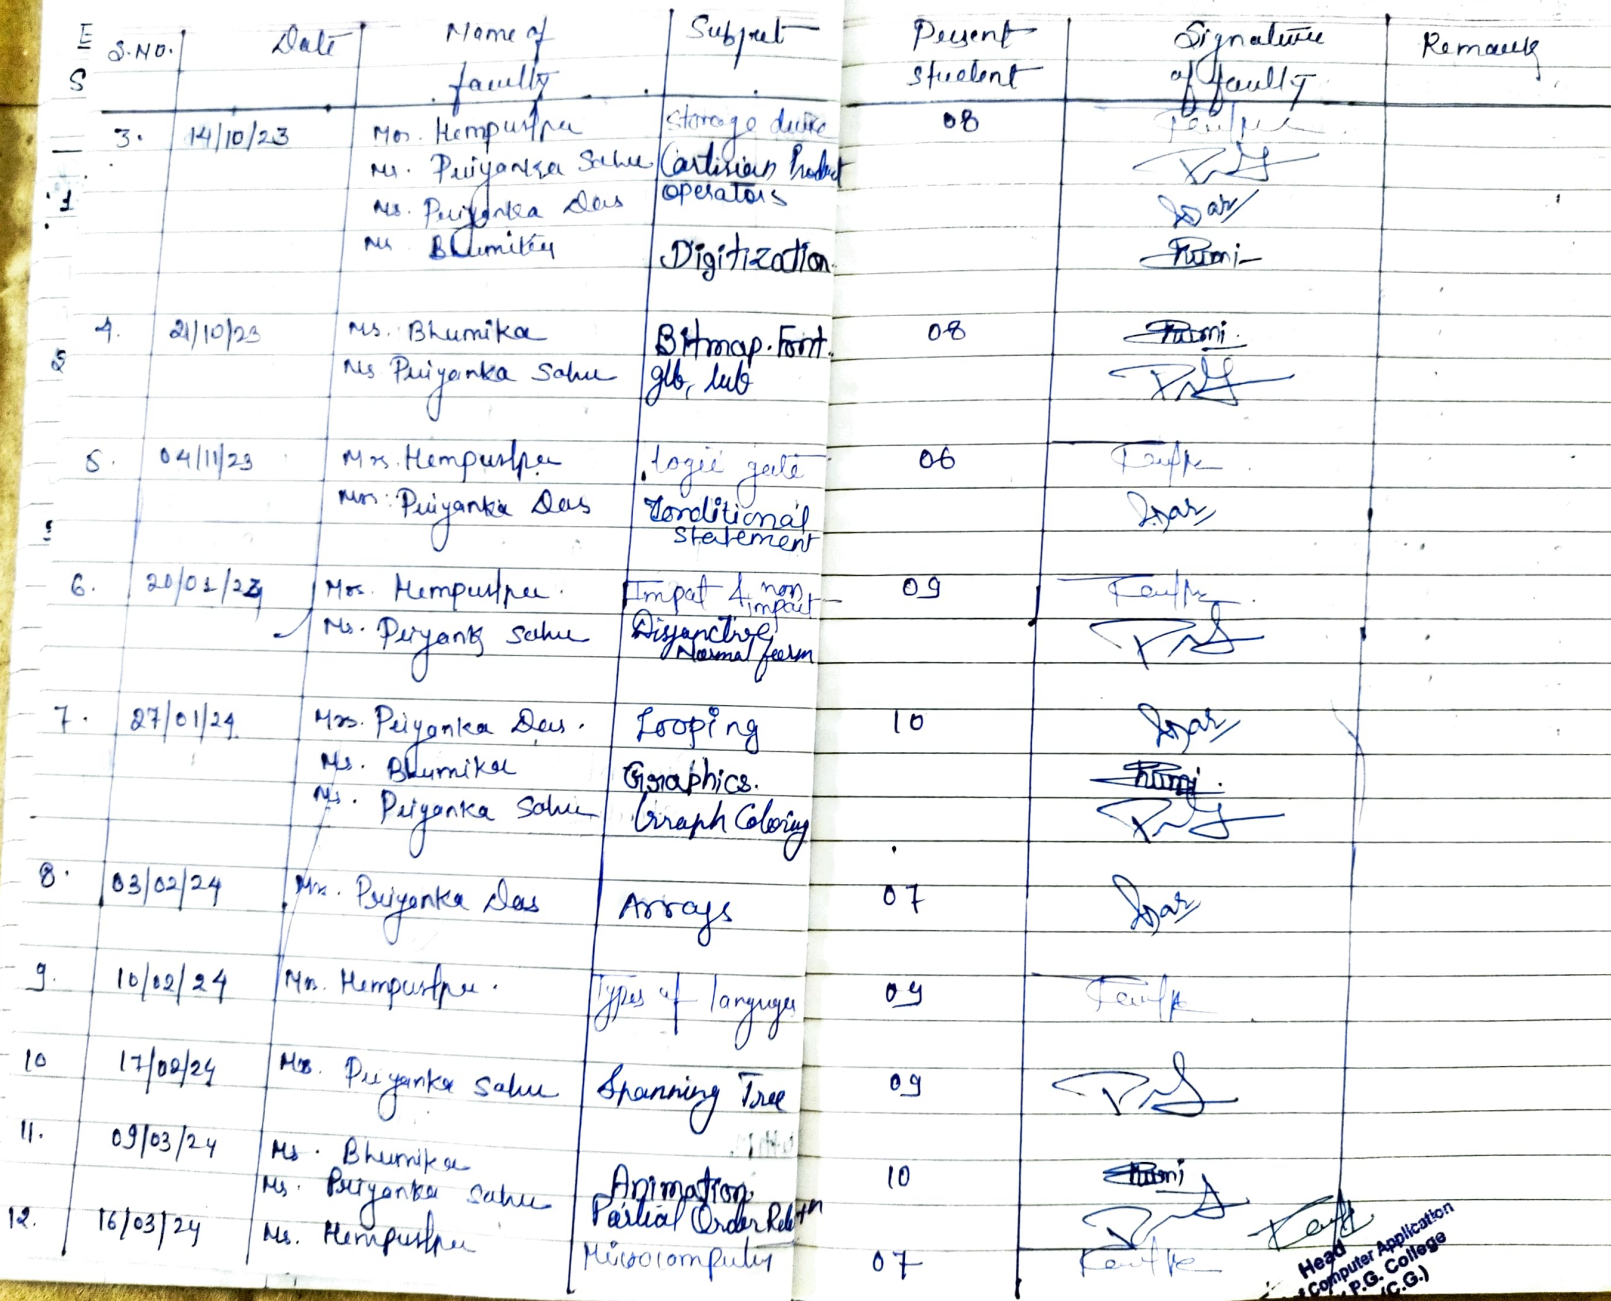 S.No. Date Name of faculty Subject Present student Signature of faculty Remark
3. 14/10/23 Mrs. Hempushpa Storage device 08
Ms. Priyanka Sahu Cartisian Product
Ms. Priyanka Das operators
Ms Bhumika Digitization
4. 21/10/23 Ms. Bhumika Bitmap. Font. 08
Ms Priyanka Sahu glb, lub
5. 04/11/23 Mrs. Hempushpa Logic gate 06
Mrs. Priyanka Das Conditional
Statement
6. 20/01/24 Mrs. Hempushpa. Impat & non impait 09
Ms. Priyanka Sahu Disjanctive
Normal form
7. 27/01/24. Mrs. Priyanka Das. Looping 10
Ms. Bhumika Graphics.
Ms. Priyanka Sahu Graph Coloring
8. 03/02/24 Mrs. Priyanka Das Arrays 07
9. 10/02/24 Mrs. Hempushpa. Types of languges 09
10 17/02/24 Ms. Priyanka Sahu Spanning Tree 09
11. 09/03/24 Ms. Bhumika Animation 10
Ms. Priyanka Sahu Partial Order Relation
12. 16/03/24 Ms. Hempushpa Microcomputer 07
Head
Computer Application
P.G. College
(C.G.)